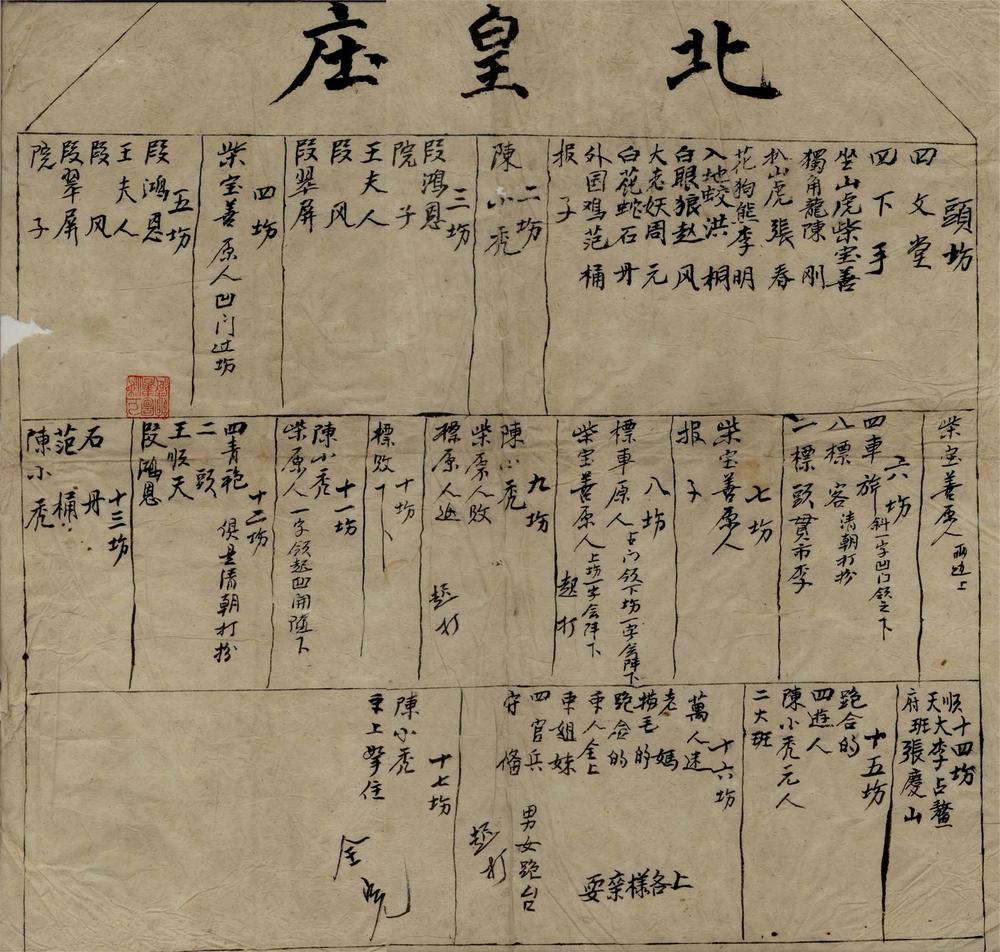 北皇庄
頭坊
四文堂
四下手
坐山虎柴宝善
獨角龍陳剛
扒山虎張春
花狗熊李明
入地蛟洪桐
白眼狼赵风
大老妖周元
白花蛇石丹
外国鸡范桶
报子
二坊
陳小秃
三坊
段鴻恩
院子
王夫人
段风
段翠屏
四坊
柴宝善原人凹门过坊
五坊
段鴻恩
王夫人
段风
段翠屏
院子
柴宝善原人两边上
六坊
四車旂斜一字凹门领之下
八標客清朝打扮
二標頭貫市李
七坊
柴宝善原人
报子
八坊
標車原人占门领下坊一字会陣下
柴宝善原人上坊一字会阵下
起打
九坊
陳小秃
柴原人败
標原人追
起打
十坊
標败下
十一坊
陳小秃
柴原人一字领起凹開随下
十二坊
四青袍俱是清朝打扮
二頭
王顺天
段鴻恩
十三坊
石丹
范桶
陳小秃
十四坊
顺天府
大班
李占鰲
張慶山
十五坊
跑合的
四遊人
陳小秃元人
二大班
十六坊
萬人迷
老媽
捞毛的
跑合的
東人全上
東姐妹
四官兵
守備
男女跑台
上各樣杂耍
起打
十七坊
陳小秃
京上拏住
全完